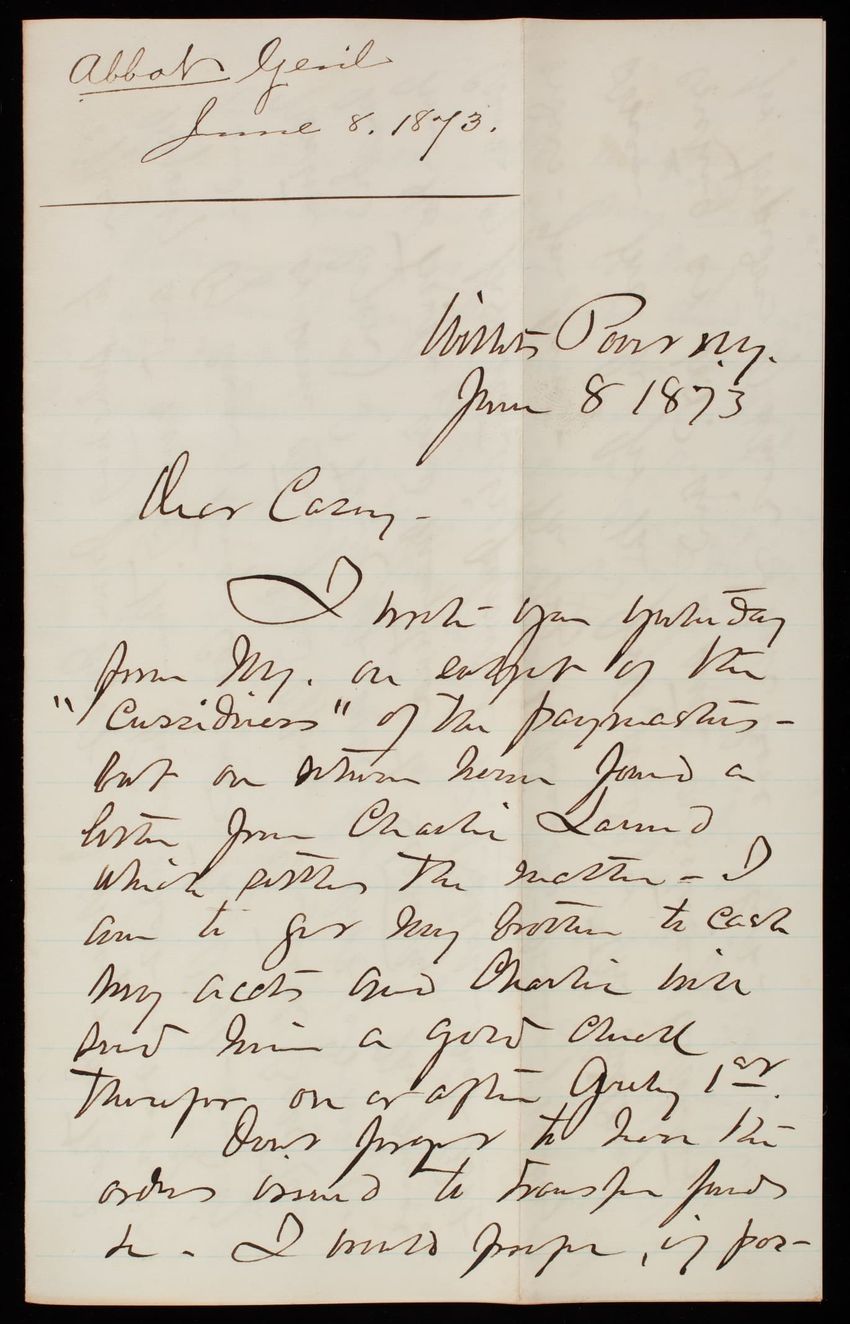 Abbot Genl
June 8. 1873.
Willets Point N.Y.
June 8 1873
Dear Casey -
I wrote you yesterday
from N.Y. on subject of the
"cussidness" of the paymasters -
but on return home found a
letter from Charlie Larned
which settles the matter - I
am to get my brother to cash
my accts and Charlie will
send him a gold check
therefor on or after July 1st.
Don't forget to have the
orders issued to transfer funds
&c. I would prefer, if pos-